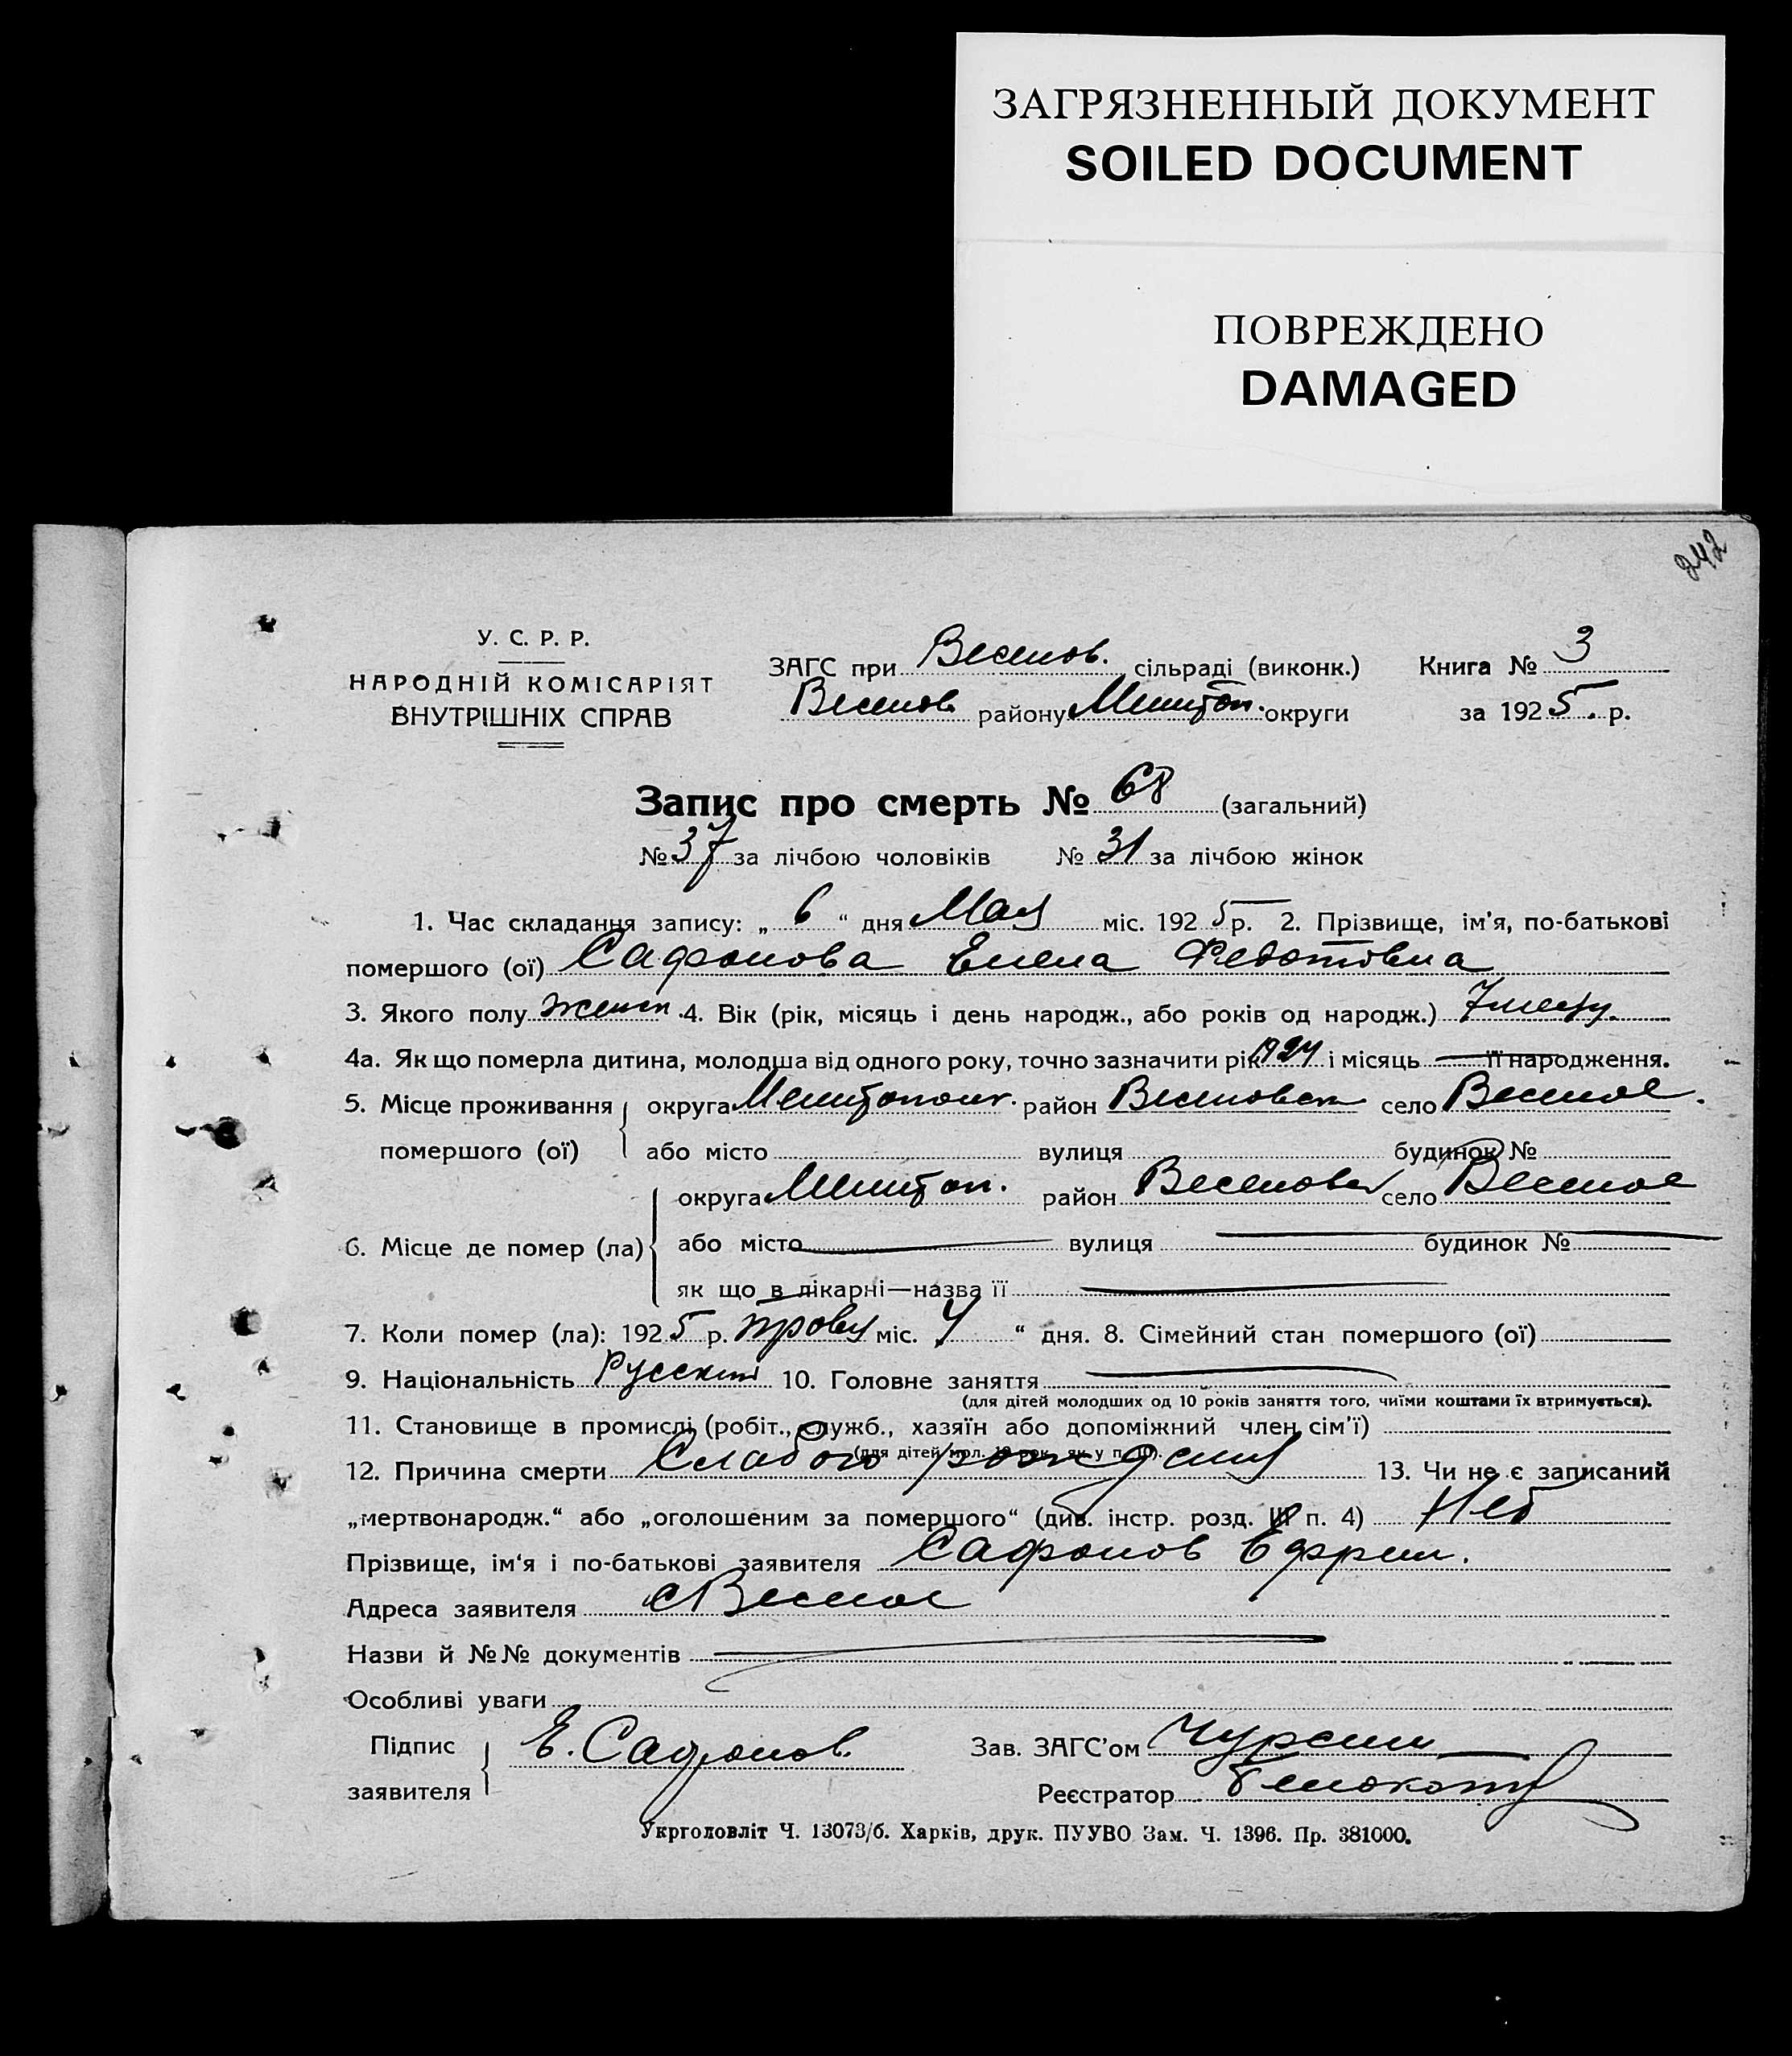 ЗАГРЯЗНЕННЫЙ ДОКУМЕНТ
SOILED DOCUMENT
ПОВРЕЖДЕНО
DAMAGED
242
У. С. Р. Р.
НАРОДНІЙ КОМІСАРІЯТ
ВНУТРІШНІХ СПРАВ
ЗАГС при Веселов. сільраді (виконк.) Книга № 3
Веселов. району Мелитоп. округи за 1925 р.
Запис про смерть № 68 (загальний)
№ 37 за лічбою чоловіків № 31 за лічбою жінок
1. Час складання запису: „ 6 “ дня Мая міс. 1925 р. 2. Прізвище, ім'я, по-батькові
помершого (ої) Сафонова Елена Федотовна
3. Якого полу женск. 4. Вік (рік, місяць і день народж., або років од народж.) 7 месяц.
4а. Як що померла дитина, молодша від одного року, точно зазначити рік 1924 і місяць її народження.
5. Місце проживання округа Мелитопольс. район Веселовск село Веселое.
помершого (ої) або місто вулиця будинок №
округа Мелитоп. район Веселовск село Веселое
6. Місце де помер (ла) або місто вулиця будинок №
як що в лікарні—назва її
7. Коли помер (ла): 1925 р. травня міс. 4 “ дня. 8. Сімейний стан помершого (ої)
9. Національність Русский 10. Головне заняття
(для дітей молодших од 10 років заняття того, чиїми коштами їх втримується).
11. Становище в промислі (робіт., служб., хазяїн або допоміжний член сім'ї)
(для дітей мол. 10 рок. як у п. 10).
12. Причина смерти Слабого рождения 13. Чи не є записаний
„мертвонародж.“ або „оголошеним за помершого“ (див. інстр. розд. III п. 4) Нет
Прізвище, ім'я і по-батькові заявителя Сафонов Ефрем.
Адреса заявителя с Веселое
Назви й №№ документів
Особливі уваги
Підпис Е. Сафонов. Зав. ЗАГС'ом Чурсин
заявителя Реєстратор
Укрголовліт Ч. 13073/б. Харків, друк. ПУУВО Зам. Ч. 1396. Пр. 381000.